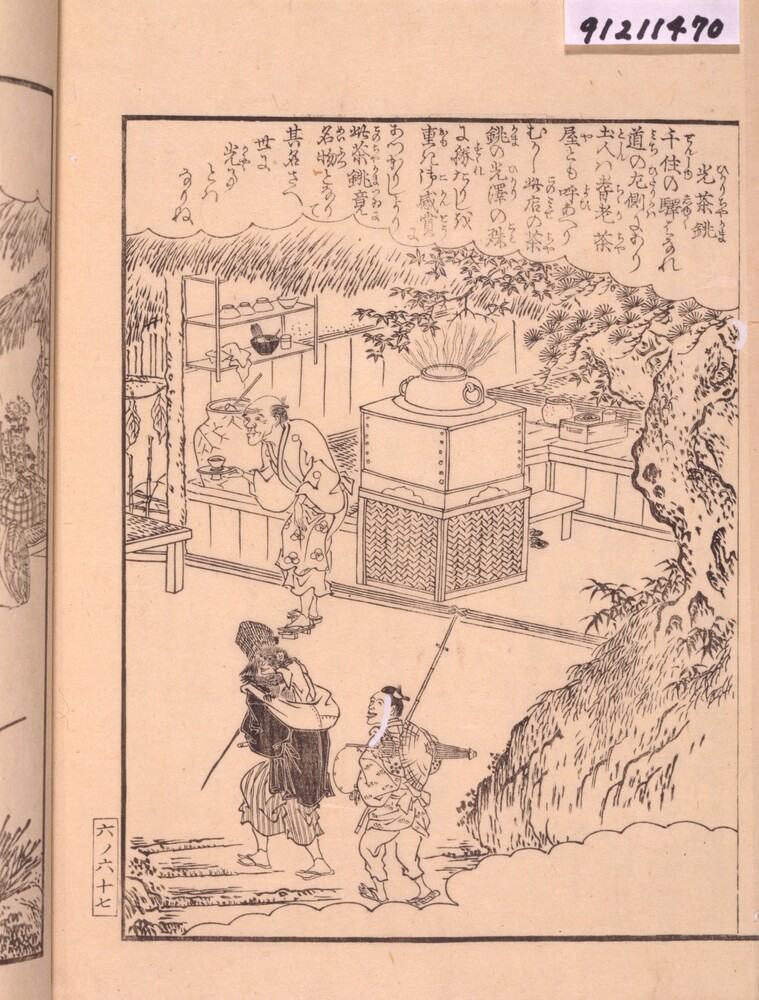 91211470
光茶銚
千住の驛はなれ
道の左側にあり
土人ハ爺老茶
屋とも呼あへり
むかし此店の茶
銚の光澤の殊
に勝たりしを
重き御感賞に
あつかりしより
此茶銚竟に
名物となりて
其名さへ
世に
光る
とは
なりね
六ノ六十七